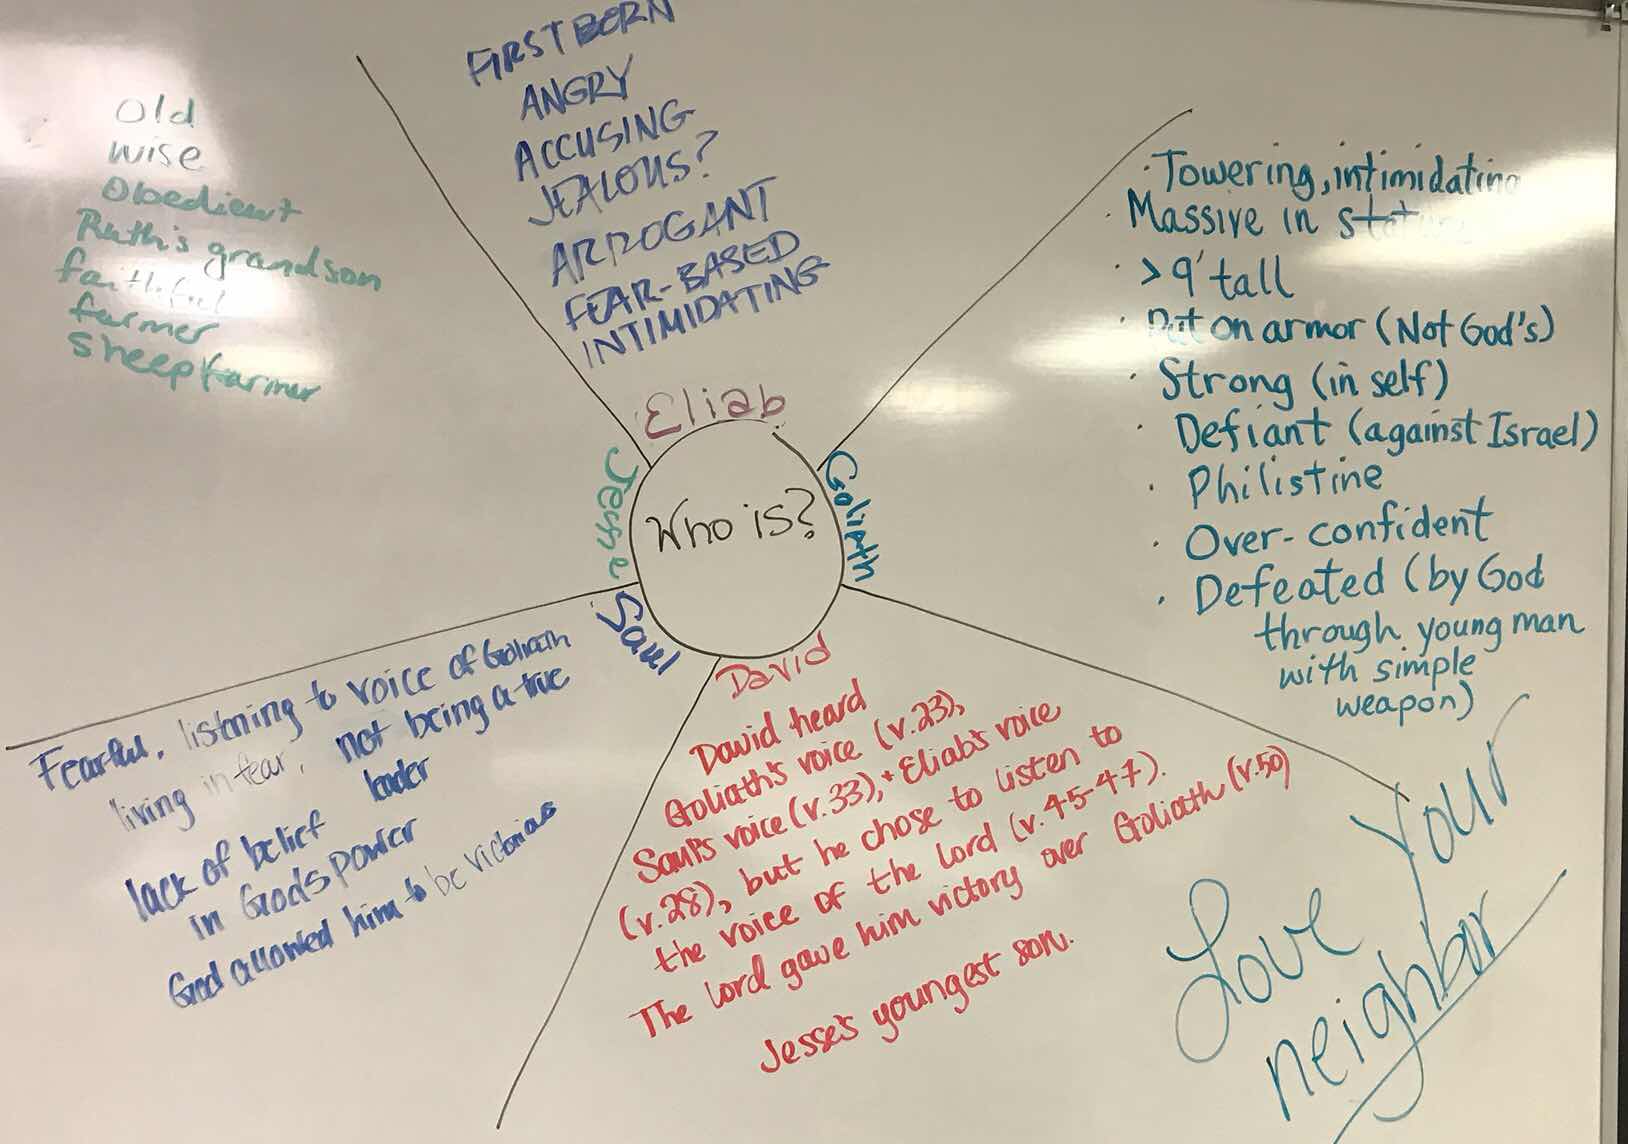 Who is?
Eliab
FIRST BORN
ANGRY
ACCUSING
JEALOUS?
ARROGANT
FEAR-BASED
INTIMIDATING
Goliath
· Towering, intimidating
· Massive in stature
· > 9' tall
· Put on armor (Not God's)
· Strong (in self)
· Defiant (against Israel)
· Philistine
· Over-confident
· Defeated (by God
through young man
with simple
weapon)
David
David heard
Goliath's voice (v.23),
Saul's voice (v.33), + Eliab's voice
(v.28), but he chose to listen to
the voice of the Lord (v.45-47).
The Lord gave him victory over Goliath (v.50)
Jesse's youngest son.
Saul
Fearful, listning to voice of Goliath
living in fear, not being a true
leader
lack of belief
in Gods power
God allowed him to be victorias
Jesse
Old
wise
Obedient
Ruth's grandson
faithful
farmer
Sheep farmer
Love Your
neighbor